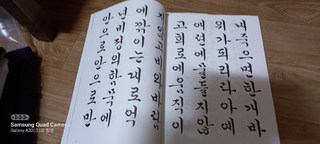 내죽으면한개바
위가되리라아예
애련에물들지않
고희로에움직이
지않고비와바람
에깎이는대로억
년비정의함묵에
안으로안으로만
Samsung Quad Camera
Galaxy A32(으)로 촬영